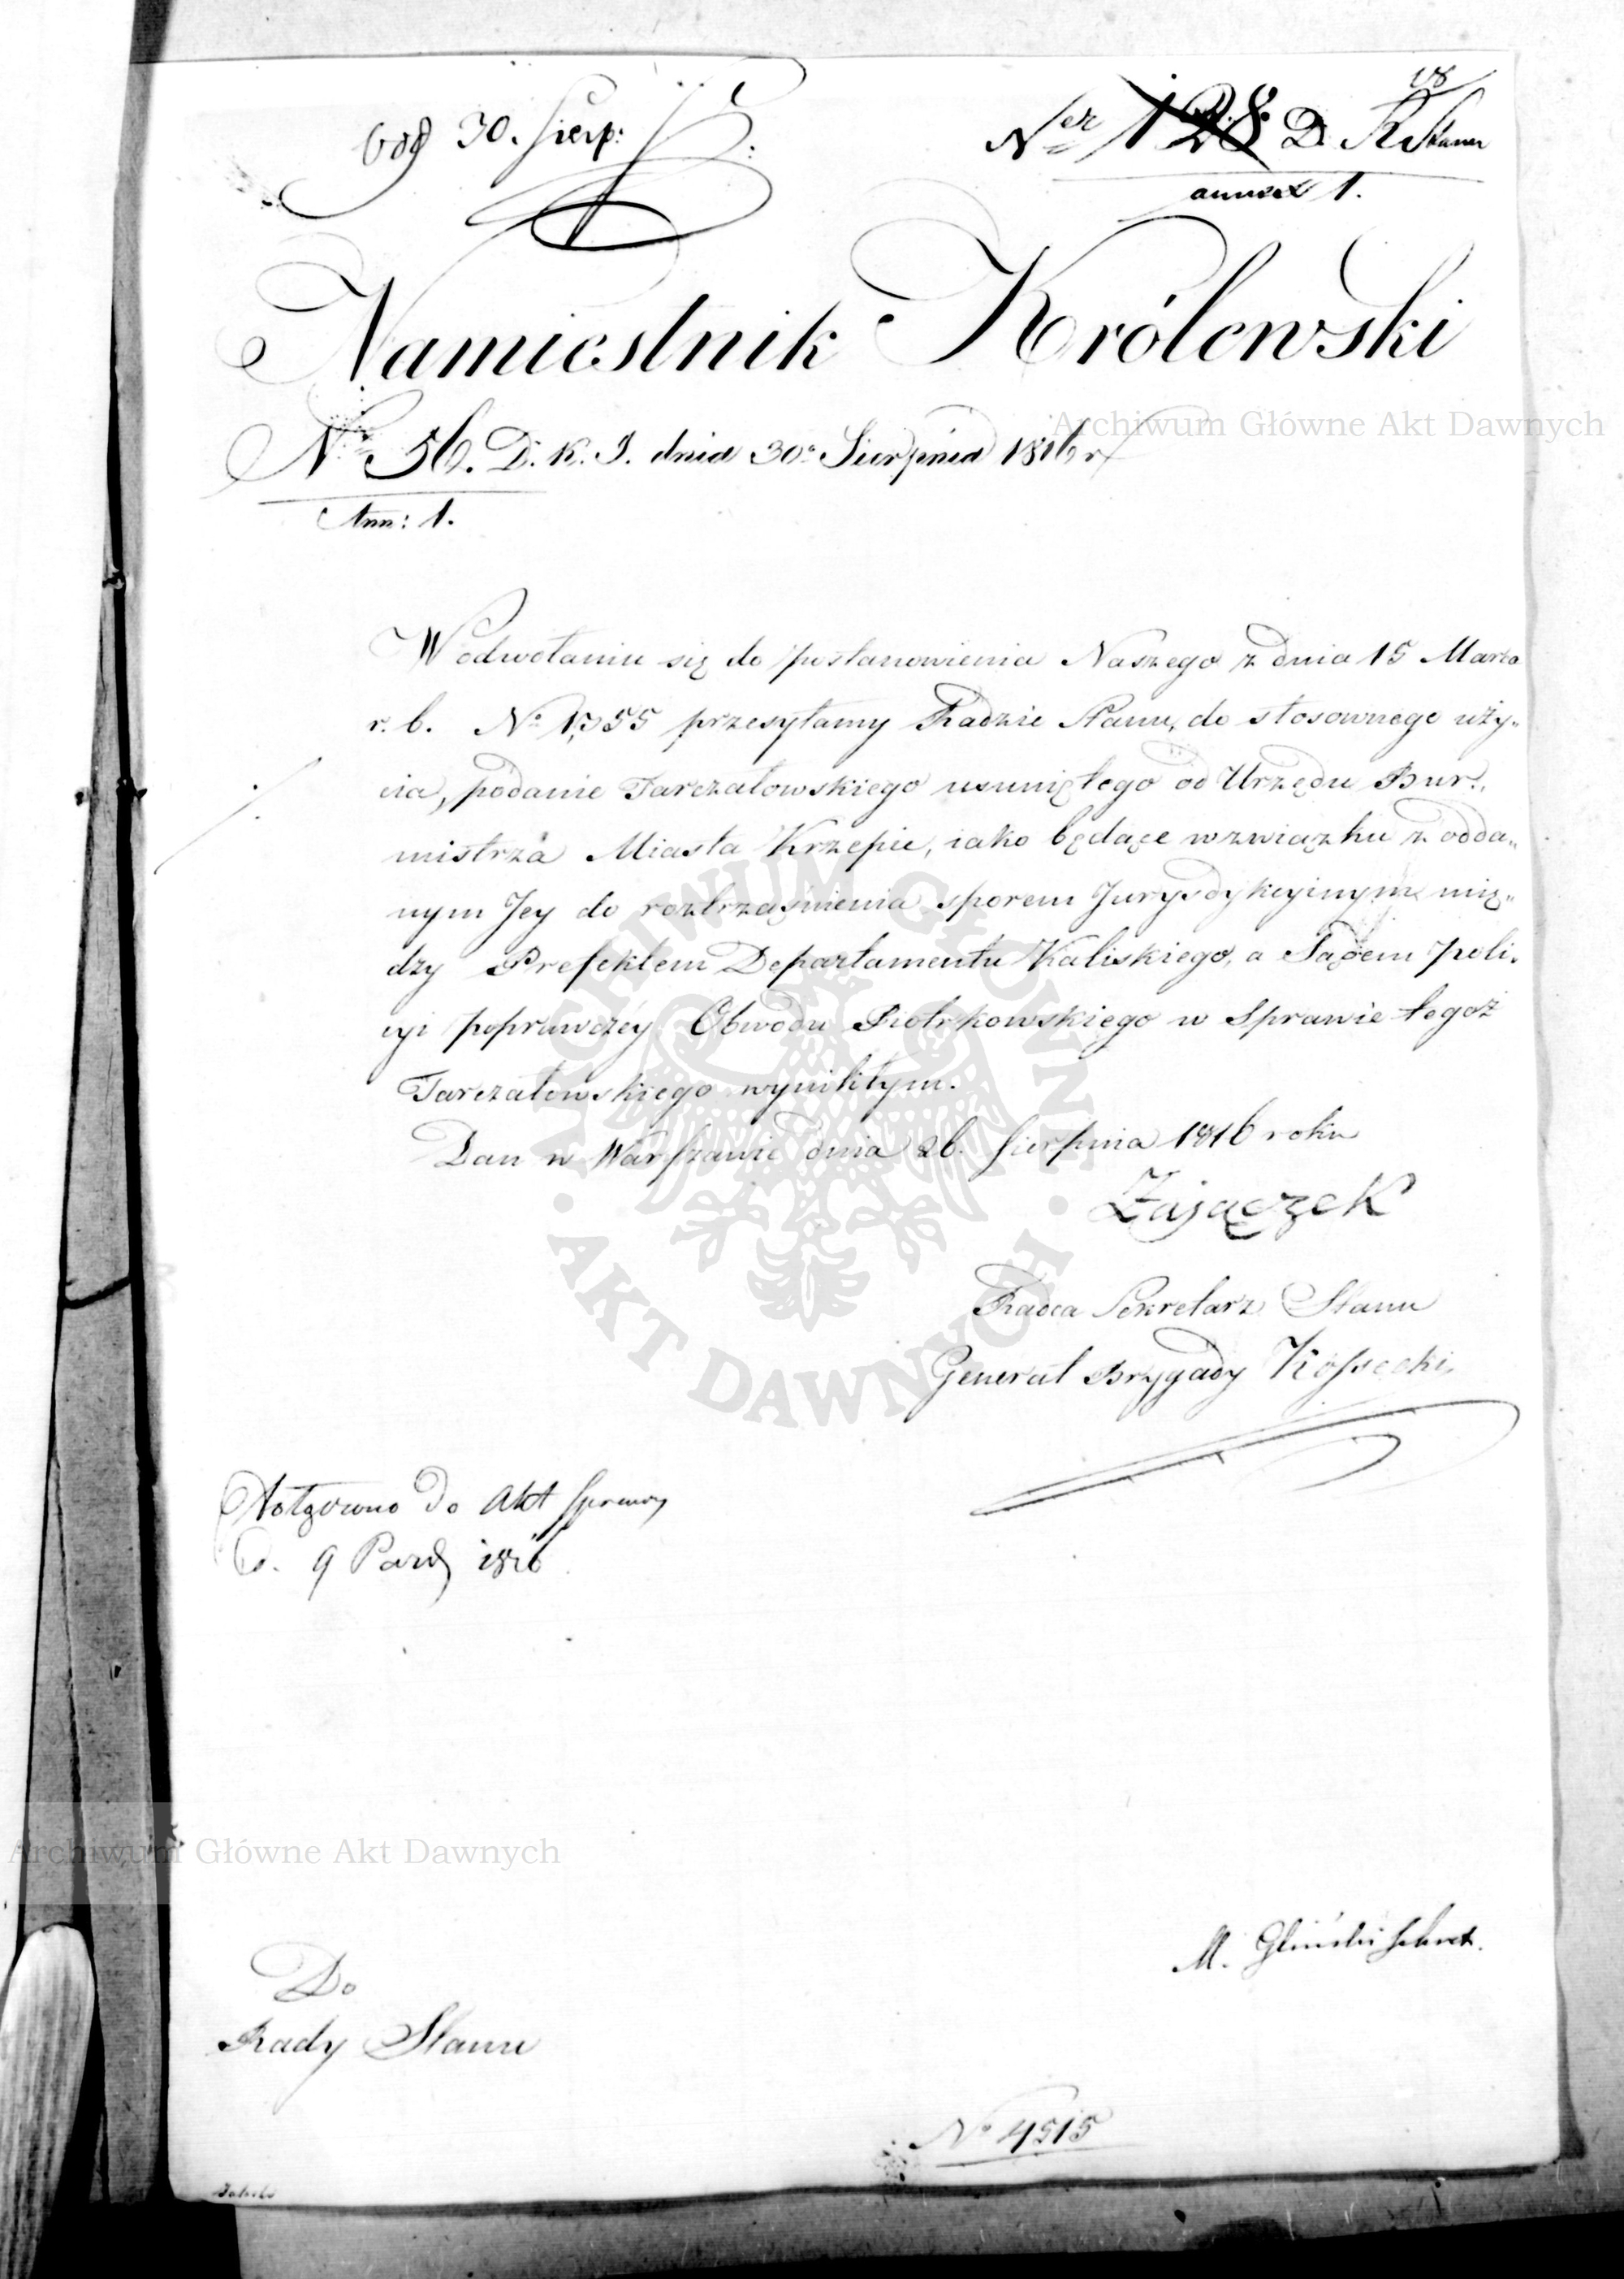 30. Sierp:
N^er 128 D. R. Stanu
annex 1.
Namiestnik Królewski
N^o 56. D. K. I. dnia 30^o Sierpnia 1816 r
Ann: 1.
W odwołaniu się do postanowienia Naszego z dnia 15 Marca
r. b. N^o 1355 przesyłamy Radzie Stanu, do stosownego uży„
cia, podanie Tarczałowskiego usuniętego od Urzędu Bur„
mistrza Miasta Krzepic, iako będące w związku z odda„
nym Jey do roztrząśnienia sporem Jurysdykcyinym mię„
dzy Prefektem Departamentu Kaliskiego, a Sądem poli„
cyi poprawczéy Obwodu Piotrkowskiego w Sprawie tegoż
Tarczałowskiego wynikłym.
Dan w Warszawie dnia 26. Sierpnia 1816 roku
Zajączek
Radca Sekretarz Stanu
Generał Brygady Kossecki
do Akt sprawy
D. 9 Paźd 1816
M. Gliński Sekret.
Do
Rady Stanu
N^o 4515
Archiwum Główne Akt Dawnych
ARCHIWUM GŁÓWNE AKT DAWNYCH
Archiwum Główne Akt Dawnych